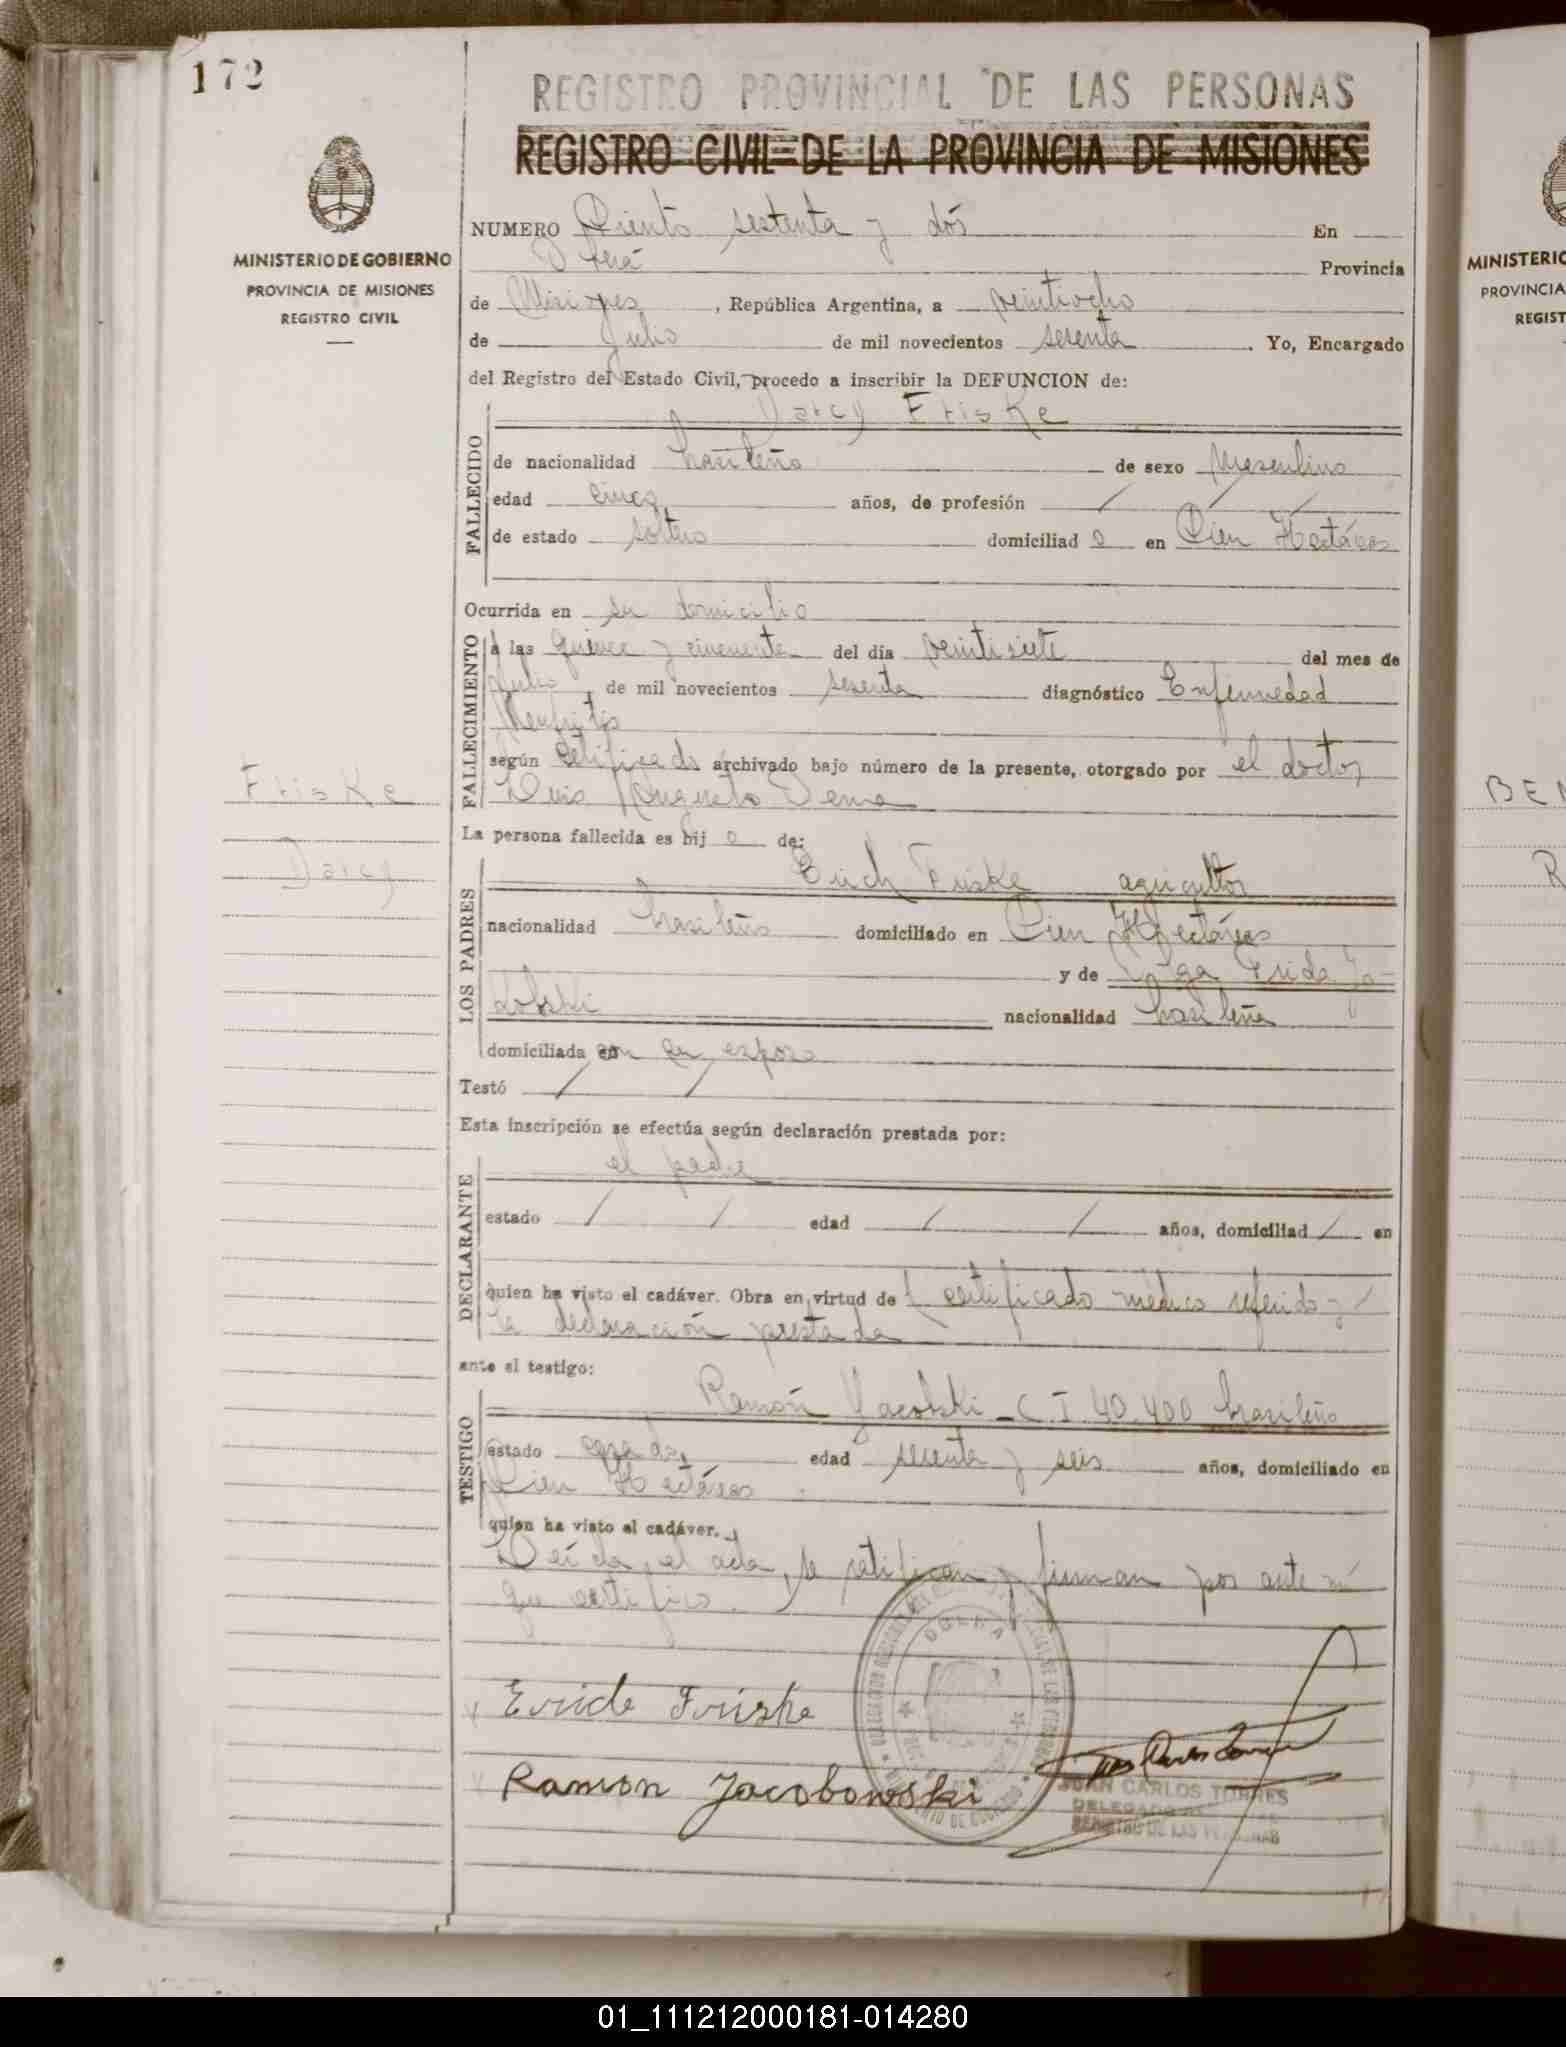 172
REGISTRO PROVINCIAL DE LAS PERSONAS
REGISTRO CIVIL DE LA PROVINCIA DE MISIONES
MINISTERIO DE GOBIERNO
PROVINCIA DE MISIONES
REGISTRO CIVIL
NUMERO Ciento setenta y dós En
Oberá Provincia
de Misiones, República Argentina, a veintiocho
de Julio de mil novecientos sesenta. Yo, Encargado
del Registro del Estado Civil, procedo a inscribir la DEFUNCION de:
Darcy Friske
FALLECIDO
de nacionalidad brasileño de sexo Masculino
edad cinco años, de profesión / / /
de estado soltero domiciliad o en Cien Hectáreas
Ocurrida en su domicilio
FALLECIMIENTO
a las quince y cincuenta del día veintisiete del mes de
Julio, de mil novecientos sesenta diagnóstico Enfermedad
Nefritis
según certificado archivado bajo número de la presente, otorgado por el doctor
Luis Augusto
La persona fallecida es hij o de:
LOS PADRES
Erich Friske agricultor
nacionalidad brasileño domiciliado en Cien Hectáreas
y de Frida Ja-
nacionalidad brasileña
domiciliada con su esposo
Testó / /
Esta inscripción se efectúa según declaración prestada por:
DECLARANTE
el padre
estado / / edad / / años, domiciliad / en
quien ha visto el cadáver. Obra en virtud de certificado médico referido y
la declaración prestada
ante el testigo:
TESTIGO
Ramón Jacobski - C.I. 40.400 brasileño
estado casado, edad sesenta y seis años, domiciliado en
Cien Hectáreas.
quien ha visto el cadáver.
Leída el acta, se ratifican y firman por ante mí
que certifico.
Friske
Ramon Jacobowski
OBERA
JUAN CARLOS TORRES
DELEGADO
REGISTRO DE LAS PERSONAS
Friske
Darcy
MINISTERIO
PROVINCIA
REGIST
BEN
R
01_111212000181-014280